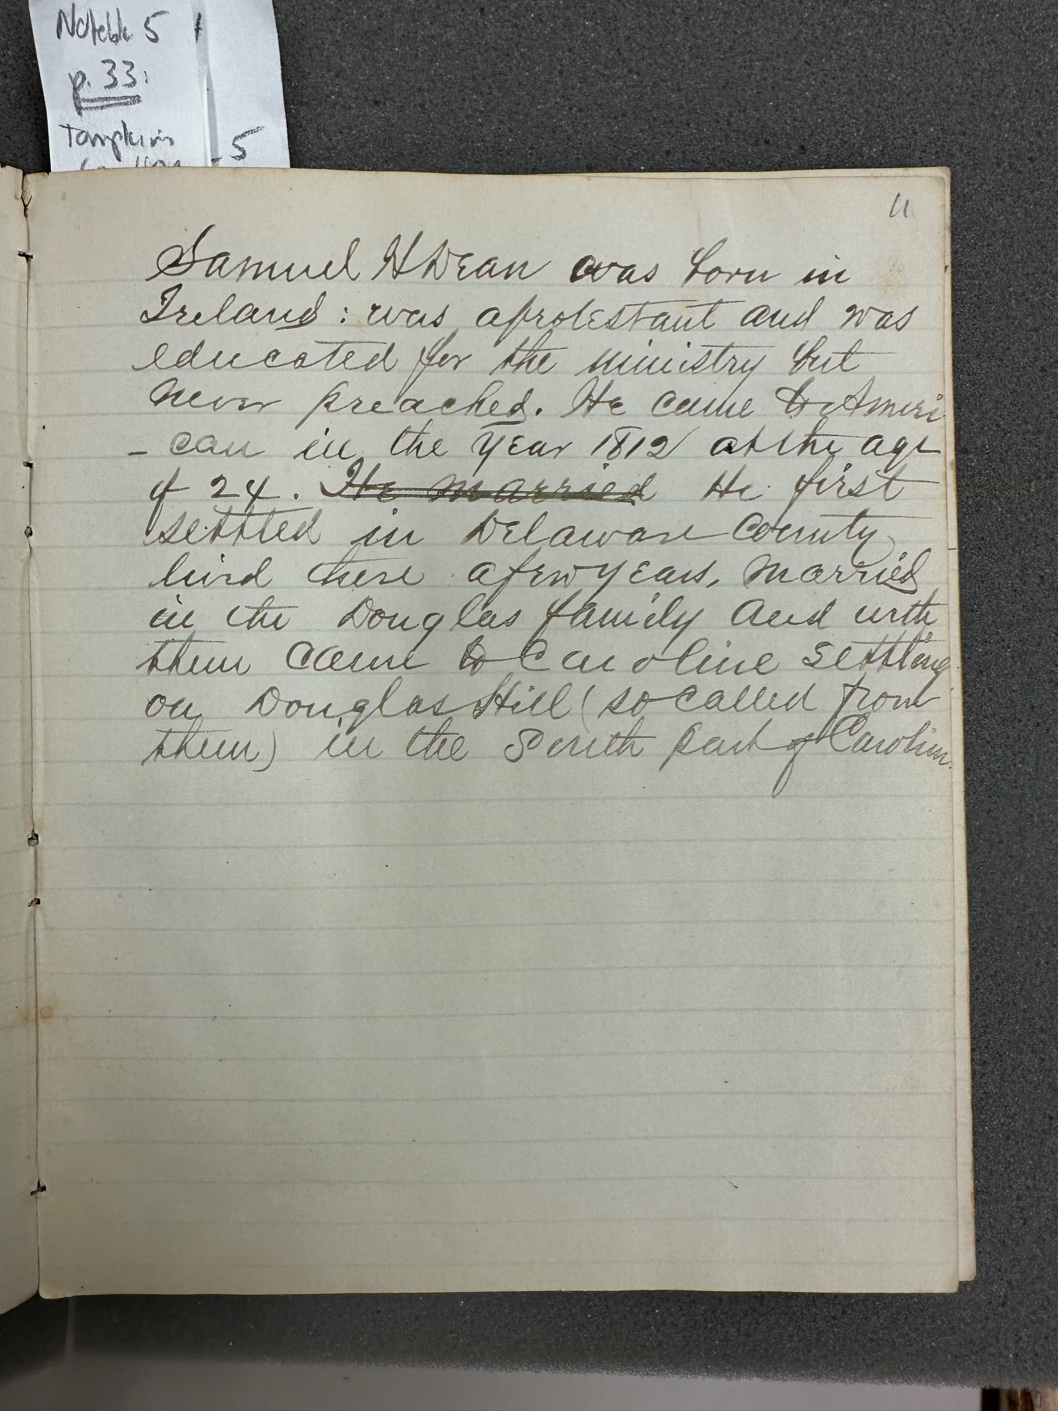 Notebk 5
p. 33:
Tompkins
- 5
11
Samuel H Dean was born in
Ireland: was a protestant and was
educated for the ministry but
never preached. He came to Ameri
- can in the year 1812 at the age
of 24. He married He first
settled in Delaware County
lived there a few years, married
in the Douglas family and with
them came to Caroline settling
on Douglas Hill (so called from
them) in the South part of Caroline.